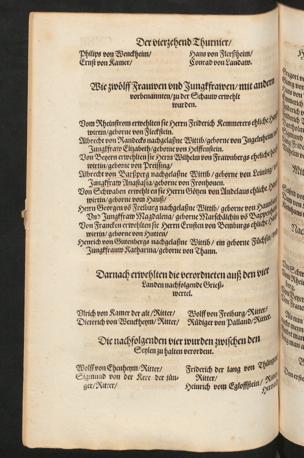 Der vierzehend Thurnier/
Philips von Wenckheim/ Hans von Flerßheim/
Ernst von Kamer/ Conrad von Landaw.
Wie zwölff Frauwen vnd Jungkfrawen/ mit andern
vorbenannten/ zu der Schauw erwehlt
wurden.
Vom Rheinstrom erwehlten sie Herrn Friderich Kemmerers ehliche
wirtin/ geborne von Fleckstein.
Albrecht von Randecks nachgelaßne Wittib/ geborne von Ingelnheim
Jungkfrauw Elizabeth/ geborne von Helffenstein.
Von Beyern erwehlten sie Herrn Wilhelm von Frawnbergs ehliche
wirtin/ geborne von Preißing/
Albrecht von Barßperg nachgelaßne Wittib/ geborne von
Jungkfraw Anastasia/ geborne von Fronhouen.
Von Schwaben erwehlt es sie Herrn Götzen von Andelaus ehliche
wirtin/ geborne vom Hauß/
Herrn Georgen vō Freiburg nachgelaßne Wittib/ geborne von
Vnd Jungkfrauw Magdalena/ geborne Marschälchin vō
Von Francken erwehlten sie Herrn Ernsten von Benburgs ehliche
wirtin/ geborne von Hutten/
Henrich von Gutenbergs nachgelaßne Wittib/ ein geborne
Jungkfrauw Katharina/ geborne von Thann.
Darnach erwehlten die verordneten auß den vier
Landen nachfolgende Grieß-
wertel.
Vlrich von Kamer der alt/ Ritter/ Wolff von Freiburg/ Ritter/
Dieterich von Wenckheym/ Ritter/ Rüdiger von Palland/ Ritter.
Die nachfolgenden vier wurden zwischen den
Seylen zu halten verordent.
Wolff von Ehenheym/ Ritter/ Friderich der lang von Thüngen
Sigmund von der Kere der jün- Ritter/
ger/ Ritter/ Heinrich vom Egloffstein/